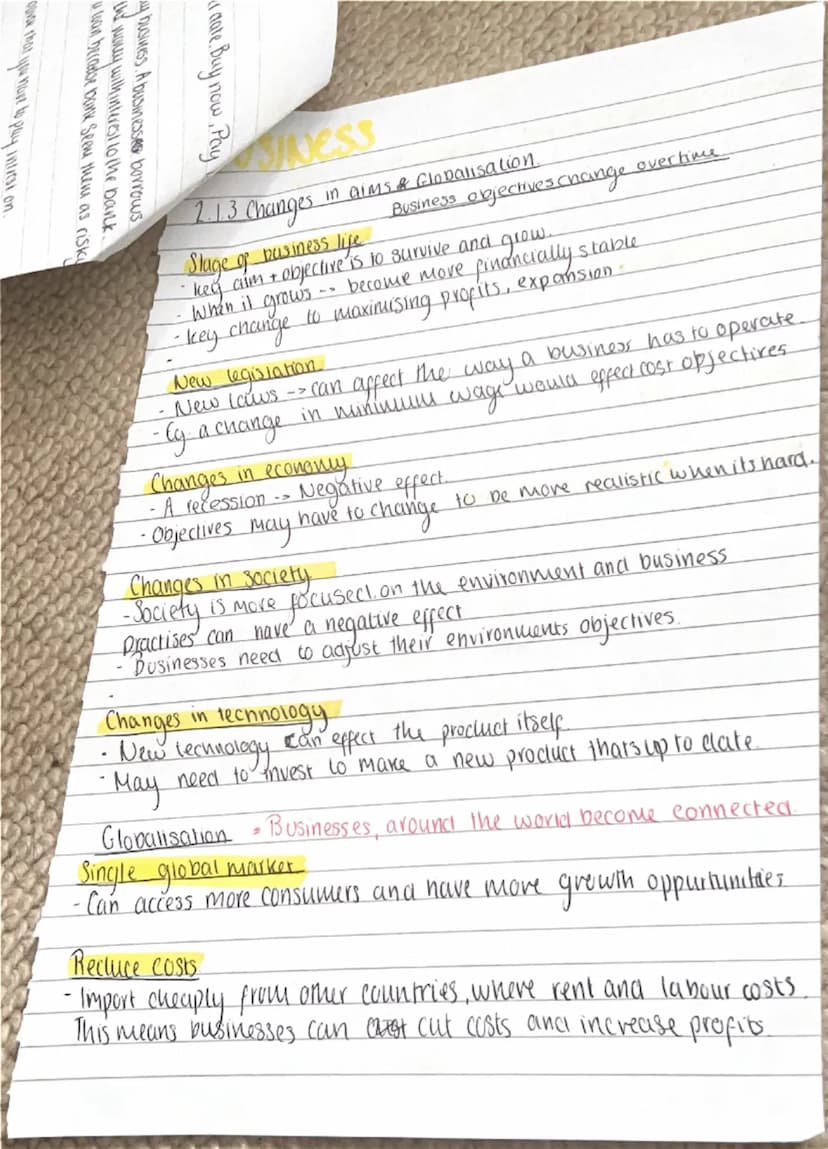 date. Buy now, Pay
business. A business borrows
money with interest to the bank.
loan because bank seen them as risky
that you have to pay interest on.
BUSINESS
2.1.3 Changes in aims & Globalisation.
Business objectives change overtime
Stage of business life
- key aim + objective is to survive and grow.
- When it grows --> become more financially stable
- key change to maximising profits, expansion.
-
New legislation
- New laws --> can affect the way a business has to operate
- Eg a change in minimum wage would effect cost objectives
Changes in economy
- A recession --> Negative effect.
- Objectives may have to change to be more realistic when its hard.
Changes in society
- Society is more focused on the environment and business
practises can have a negative effect
- Businesses need to adjust their environments objectives.
-
Changes in technology
- New technology can effect the product itself.
- May need to invest to make a new product thats up to date.
Globalisation = Businesses, around the world become connected.
Single global market
- Can access more consumers and have more growth oppurtunities
Reduce costs
- Import cheaply from other countries, where rent and labour costs.
This means businesses can cut costs and increase profits.